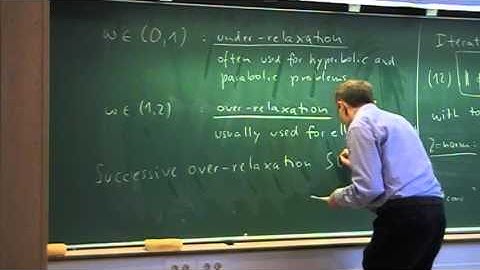 w ∈ (0,1) : under-relaxation
often used for hyperbolic and
parabolic problems
w ∈ (1,2) : over-relaxation
usually used for ell
Successive over-relaxation S
Iterat
(12)
with to
2-norm:
conv